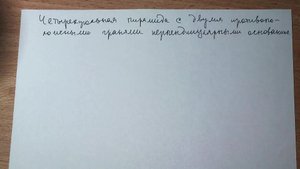 Четырехугольная пирамида с двумя противопо-
ложными гранями перпендикулярными основанию.